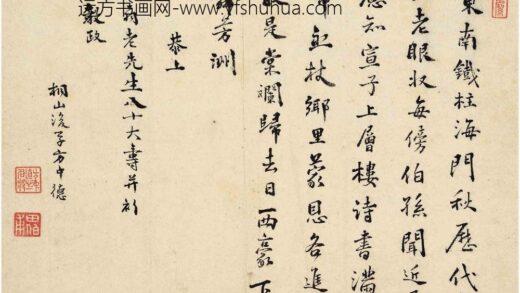 远方书画网-www.yfshuhua.com
東南鐵柱海門秋歷代
老眼收每傍伯孫聞近
應知宣子上層樓詩書滿
杖鄉里蒙恩各進
是棠斕歸去日一兩家下
芳洲
恭上
老先生八十大壽并祈
毅政
桐山後學方中德